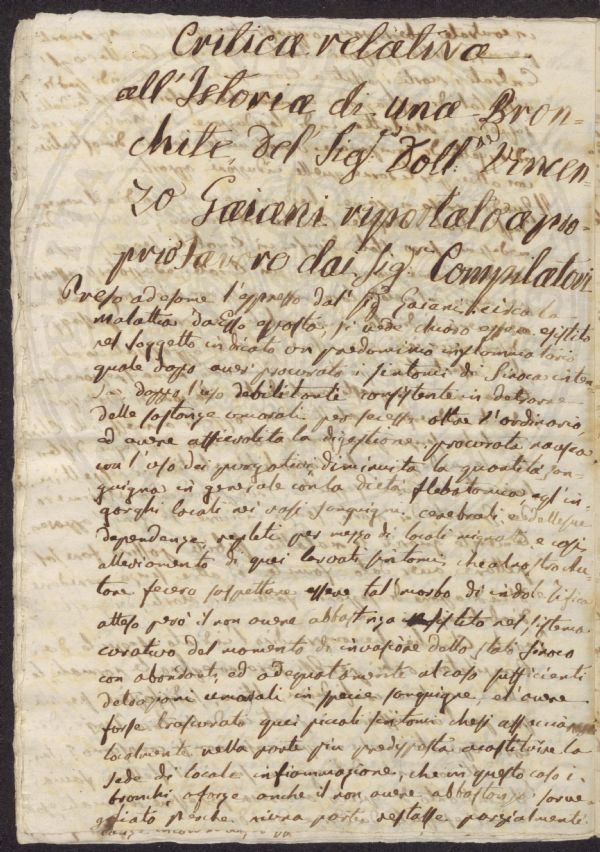 Critica relativa
all'Istoria di una Bron=
chite, del Sig.r Dott. Vincen=
zo Gaiani riportata a pro=
prio lavoro dai Sig.ri Compilatori
Preso ad esame l'espresso dal Sig.r Gaiani circa la
malattia da Esso esposta, si vede chiaro essere esistito
nel soggetto indicato un predominio infiammatorio
quale dopo aver procurato i sintomi di Sinoca inten=
sa, doppo l'uso debilitante consistente in detrarre
delle sostanze umorali per secessi oltre l'ordinario,
ed avere affievolita la digestione, procurata nausea
con l'uso dei purgativi, diminuita la quantità san=
guigna in generale con la dieta flebotomica negl'in=
gorghi locali nei vasi sanguigni cerebrali e delle sue
dependenze, repleti per mezzo di locali mignatte e così
alleviamento di quei levati sintomi che al nostro Au=
tore fecero sospettare essere tal morbo di indole tifica
atteso però il non avere abbastanza insistito nel sistema
curativo del momento di invasione dello stato Sinoco
con abondanti, ed adequatamente al caso sufficienti
detrazioni umorali in specie sanguigne, e l'avere
forse trascurato quei piccoli sintomi che si associano
localmente nella parte più predisposta a costituire la
sede di locale infiammazione, che in questo caso i
bronchi, a forze anche il non avere abbastanza sorve=
gliato perche niuna parte restasse parzialmente